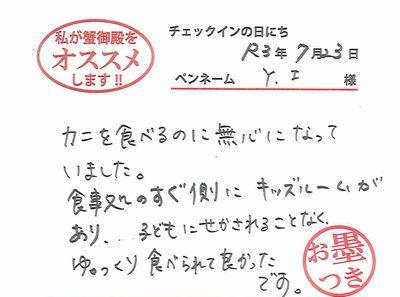 私が蟹御殿を
オススメ
します!!
チェックインの日にち
R3年 7月23日
ペンネーム Y.I 様
カニを食べるのに無心になって
いました。
食事処のすぐ側にキッズルームが
あり、子どもにせかされることなく、
ゆっくり食べられて良かった
です。
お墨
つき